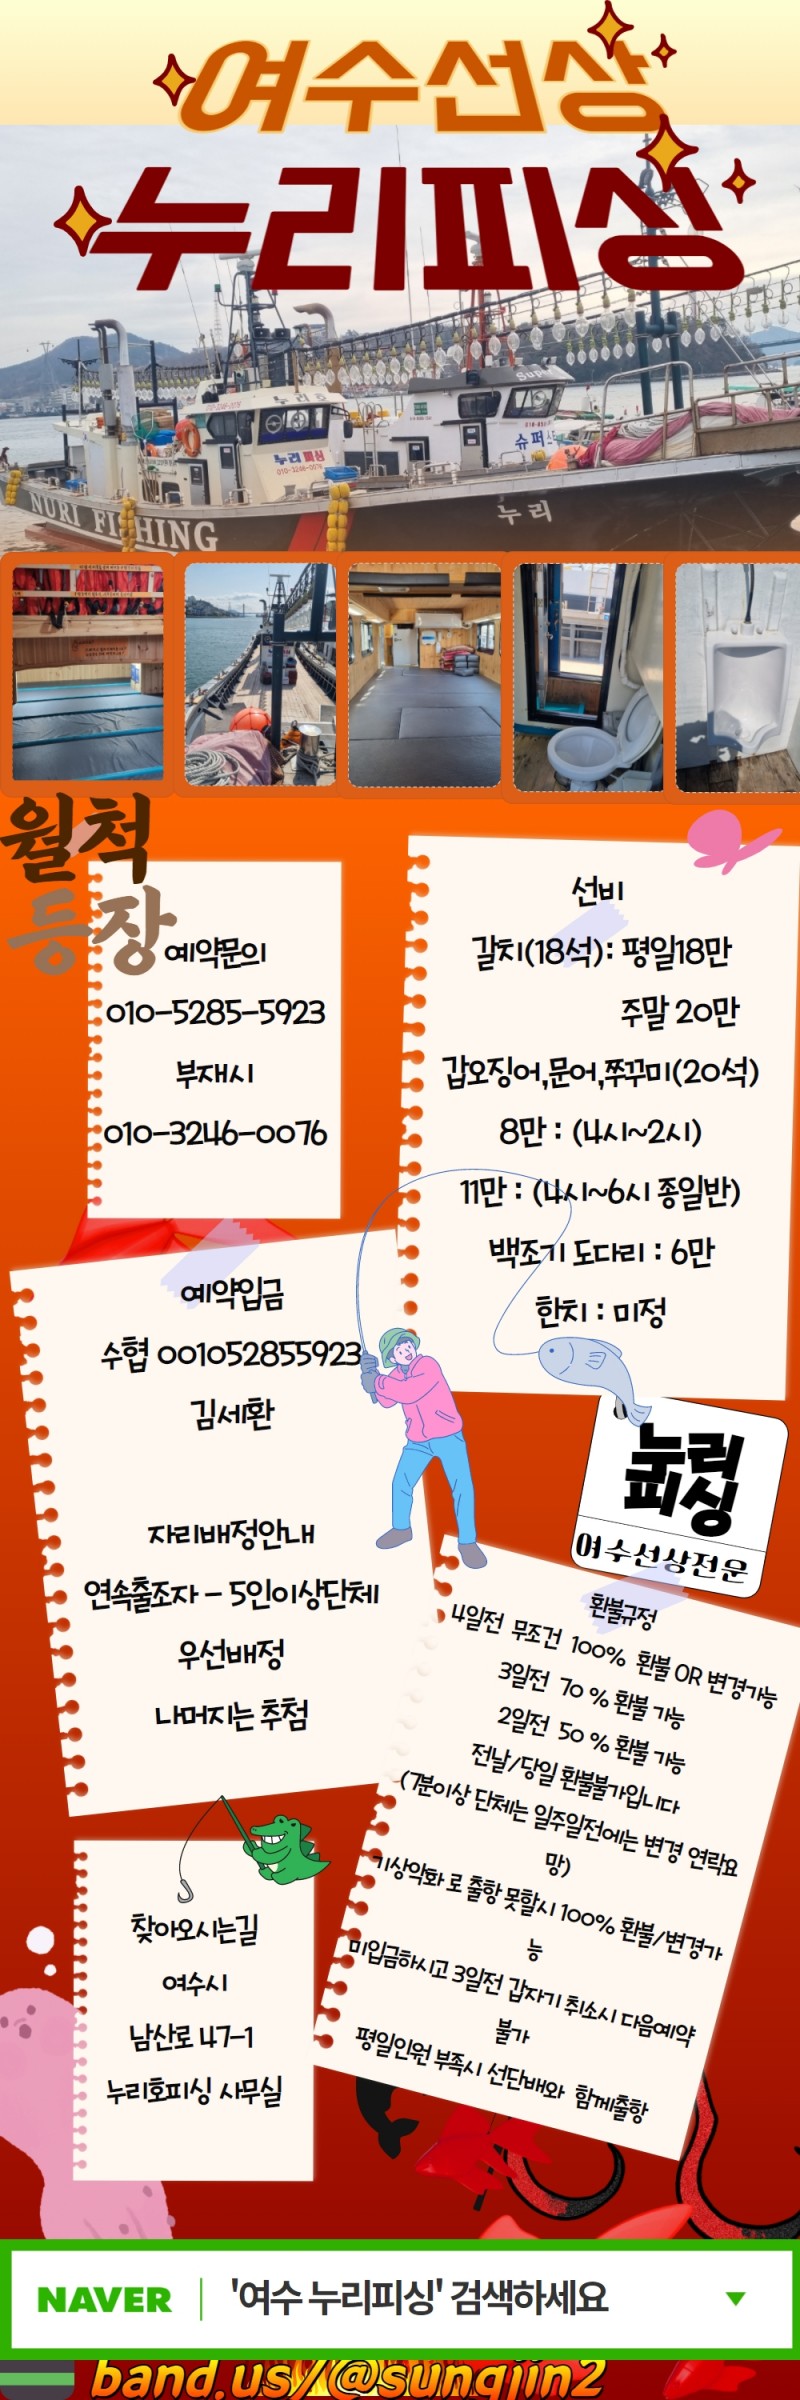 여수선상
누리피싱
누리호
Sup
누리피싱
010-3246-0076
슈퍼스
NURI FISHING
누리
월척
등장
예약문의
010-5285-5923
부재시
010-3246-0076
선비
갈치(18석): 평일18만
주말 20만
갑오징어,문어,쭈꾸미(20석)
8만 : (4시~2시)
11만 : (4시~6시 종일반)
백조기 도다리 : 6만
한치 : 미정
예약입금
수협 001052855923
김세환
자리배정안내
연속출조자 - 5인이상단체
우선배정
나머지는 추첨
누리
피싱
여수선상전문
환불규정
4일전 무조건 100% 환불 OR 변경가능
3일전 70 % 환불 가능
2일전 50 % 환불 가능
전날/당일 환불불가입니다
(7분이상 단체는 일주일전에는 변경 연락요
망)
기상악화 로 출항 못할시 100% 환불/변경가
능
미입금하시고 3일전 갑자기 취소시 다음예약
불가
평일인원 부족시 선단배와 함께출항
찾아오시는길
여수시
남산로 47-1
누리호피싱 사무실
NAVER '여수 누리피싱' 검색하세요
band.us/@sungjin2